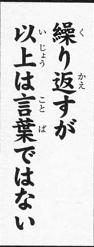 繰り返すが
以上は言葉ではない